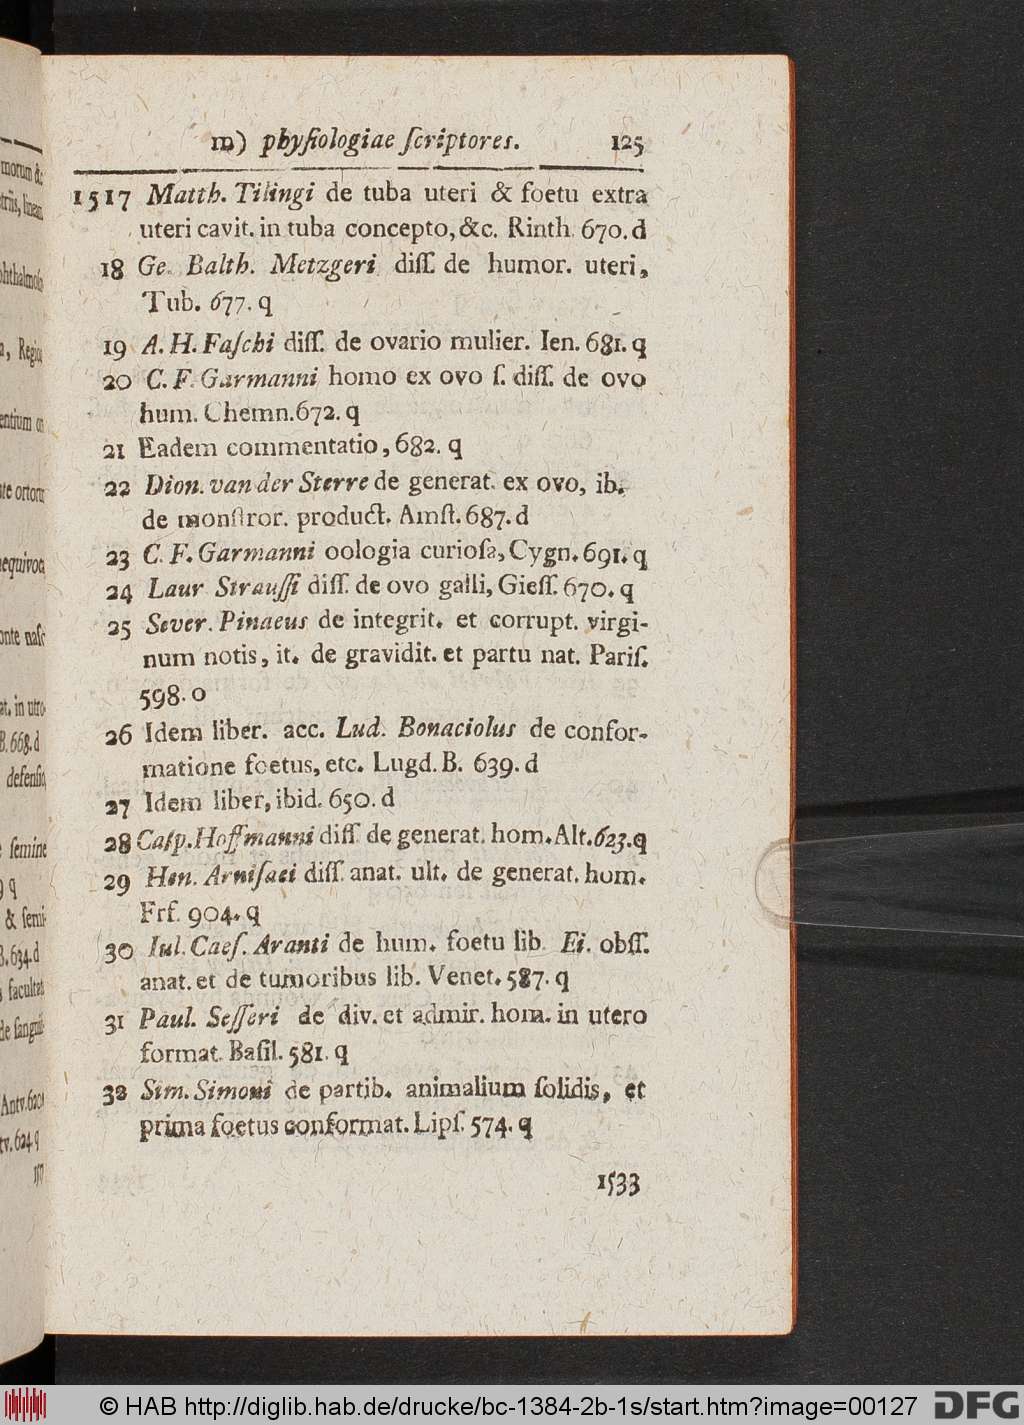 m) phyſiologiae ſcriptores. 125
1517 Matth. Tilingi de tuba uteri & foetu extra
uteri cavit. in tuba concepto, &c. Rinth. 670. d
18 Ge. Balth. Metzgeri diſſ. de humor. uteri,
Tub. 677. q
19 A. H. Faſchi diſſ. de ovario mulier. Ien. 681. q
20 C. F. Garmanni homo ex ovo ſ. diſſ. de ovo
hum. Chemn. 672. q
21 Eadem commentatio, 682. q
22 Dion. van der Sterre de generat. ex ovo, ib.
de monſtror. product. Amſt. 687. d
23 C. F. Garmanni oologia curioſa, Cygn. 691. q
24 Laur Strauſſi diſſ. de ovo galli, Gieſſ. 670. q
25 Sever. Pinaeus de integrit. et corrupt. virgi-
num notis, it. de gravidit. et partu nat. Pariſ.
598. o
26 Idem liber. acc. Lud. Bonaciolus de confor-
matione foetus, etc. Lugd. B. 639. d
27 Idem liber, ibid. 650. d
28 Caſp. Hoffmanni diſſ. de generat. hom. Alt. 623. q
29 Hen. Arniſaei diſſ. anat. ult. de generat. hom.
Frf. 904. q
30 Iul. Caeſ. Aranti de hum. foetu lib. Ei. obſſ.
anat. et de tumoribus lib. Venet. 587. q
31 Paul. Seſſeri de div. et admir. hom. in utero
format. Baſil. 581. q
32 Sim. Simoni de partib. animalium ſolidis, et
prima foetus conformat. Lipſ. 574. q
1533
morum &
linean
phthalmoſo
a, Regio
entium
ortor
aequivoca
onte naſc
at. in utro-
B. 668. d
defenſio,
ſemine
q
& ſemi-
B. 634. d
facultat
de ſangui-
Antv. 620
tv. 624 q
© HAB http://diglib.hab.de/drucke/bc-1384-2b-1s/start.htm?image=00127
DFG